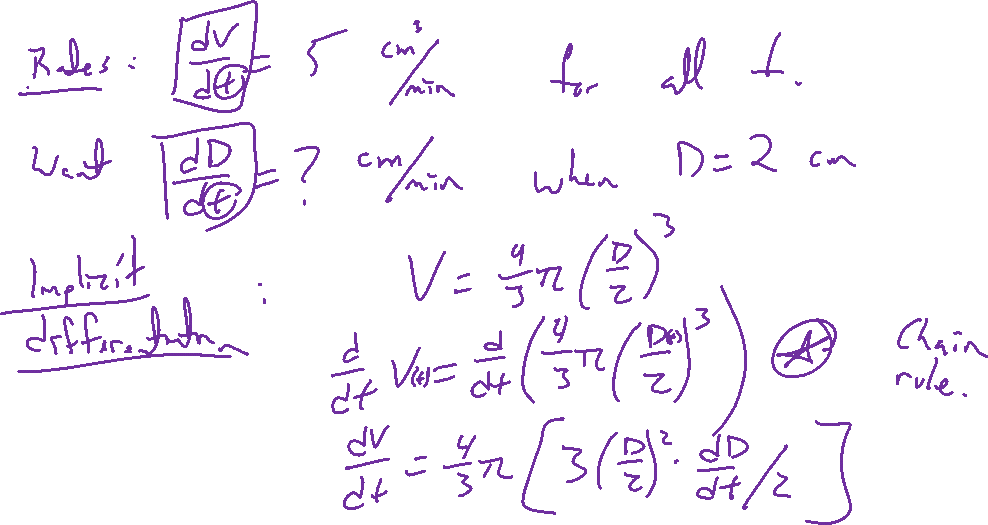 Rates: dV/dt = 5 cm³/min for all t.
Want dD/dt = ? cm/min when D = 2 cm
Implicit differentiation: V = 4/3 π (D/2)³
d/dt V(t) = d/dt (4/3 π (D(t)/2)³) A Chain rule.
dV/dt = 4/3 π [3 (D/2)² · dD/dt / 2]